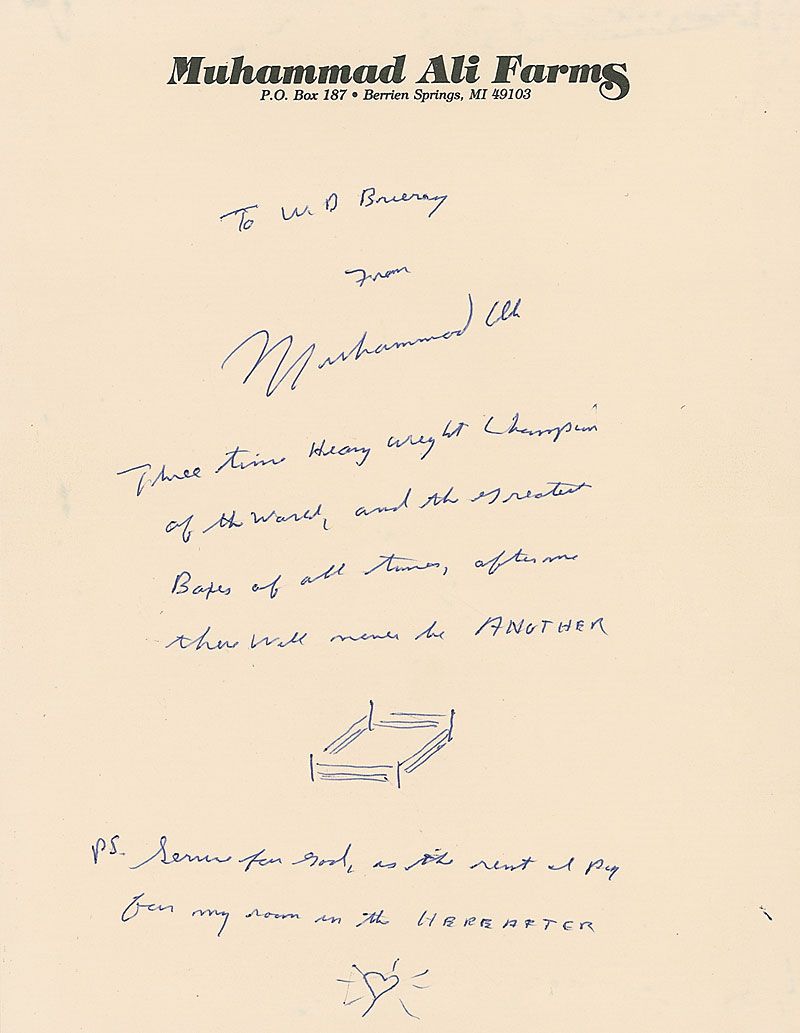 Muhammad Ali Farms
P.O. Box 187 • Berrien Springs, MI 49103
To W. D
From
Muhammad Ali
Three time Heavy weight Champion
of the World, and the greatest
Boxer of all times, after me
there will never be ANOTHER
PS. Service for God, is the rent I pay
for my room in the HEREAFTER